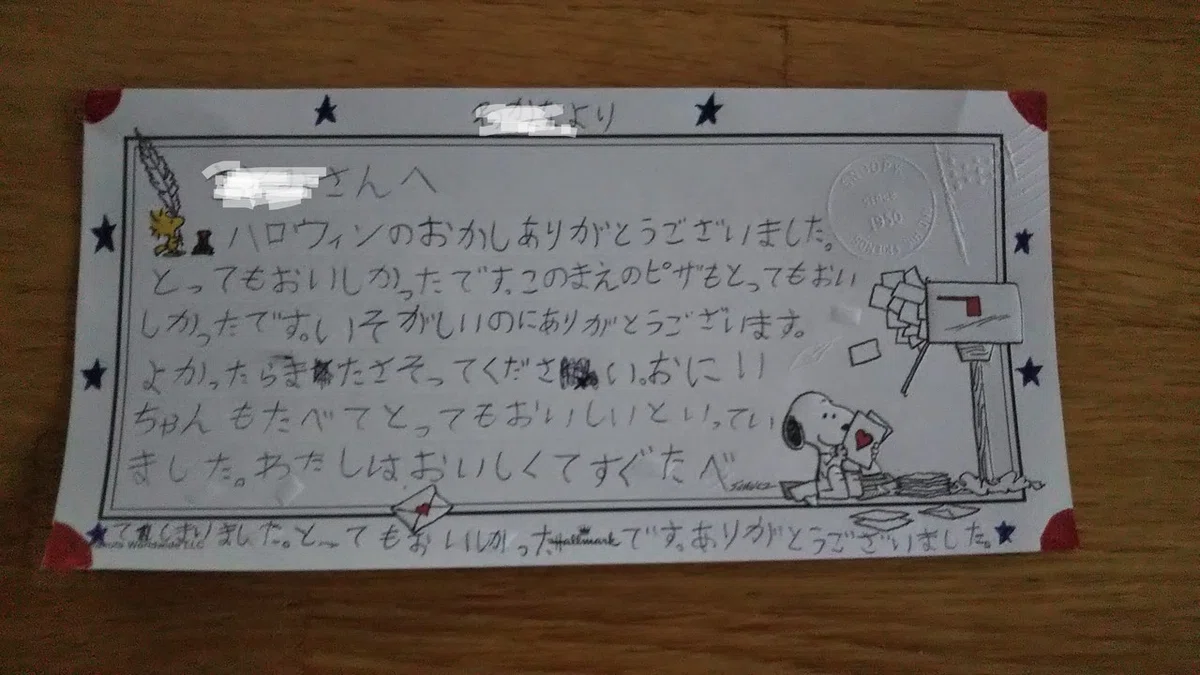 より
さんへ
ハロウィンのおかしありがとうございました。
とってもおいしかったです。このまえのピザもとってもおい
しかったです。いそがしいのにありがとうございます。
よかったらまたさそってください。おにい
ちゃんもたべてとってもおいしいといってい
ました。わたしはおいしくてすぐたべ
てしまいました。とってもおいしかったです。ありがとうございました。
SNOOPY
SINCE
1950
Hallmark
Worldwide LLC